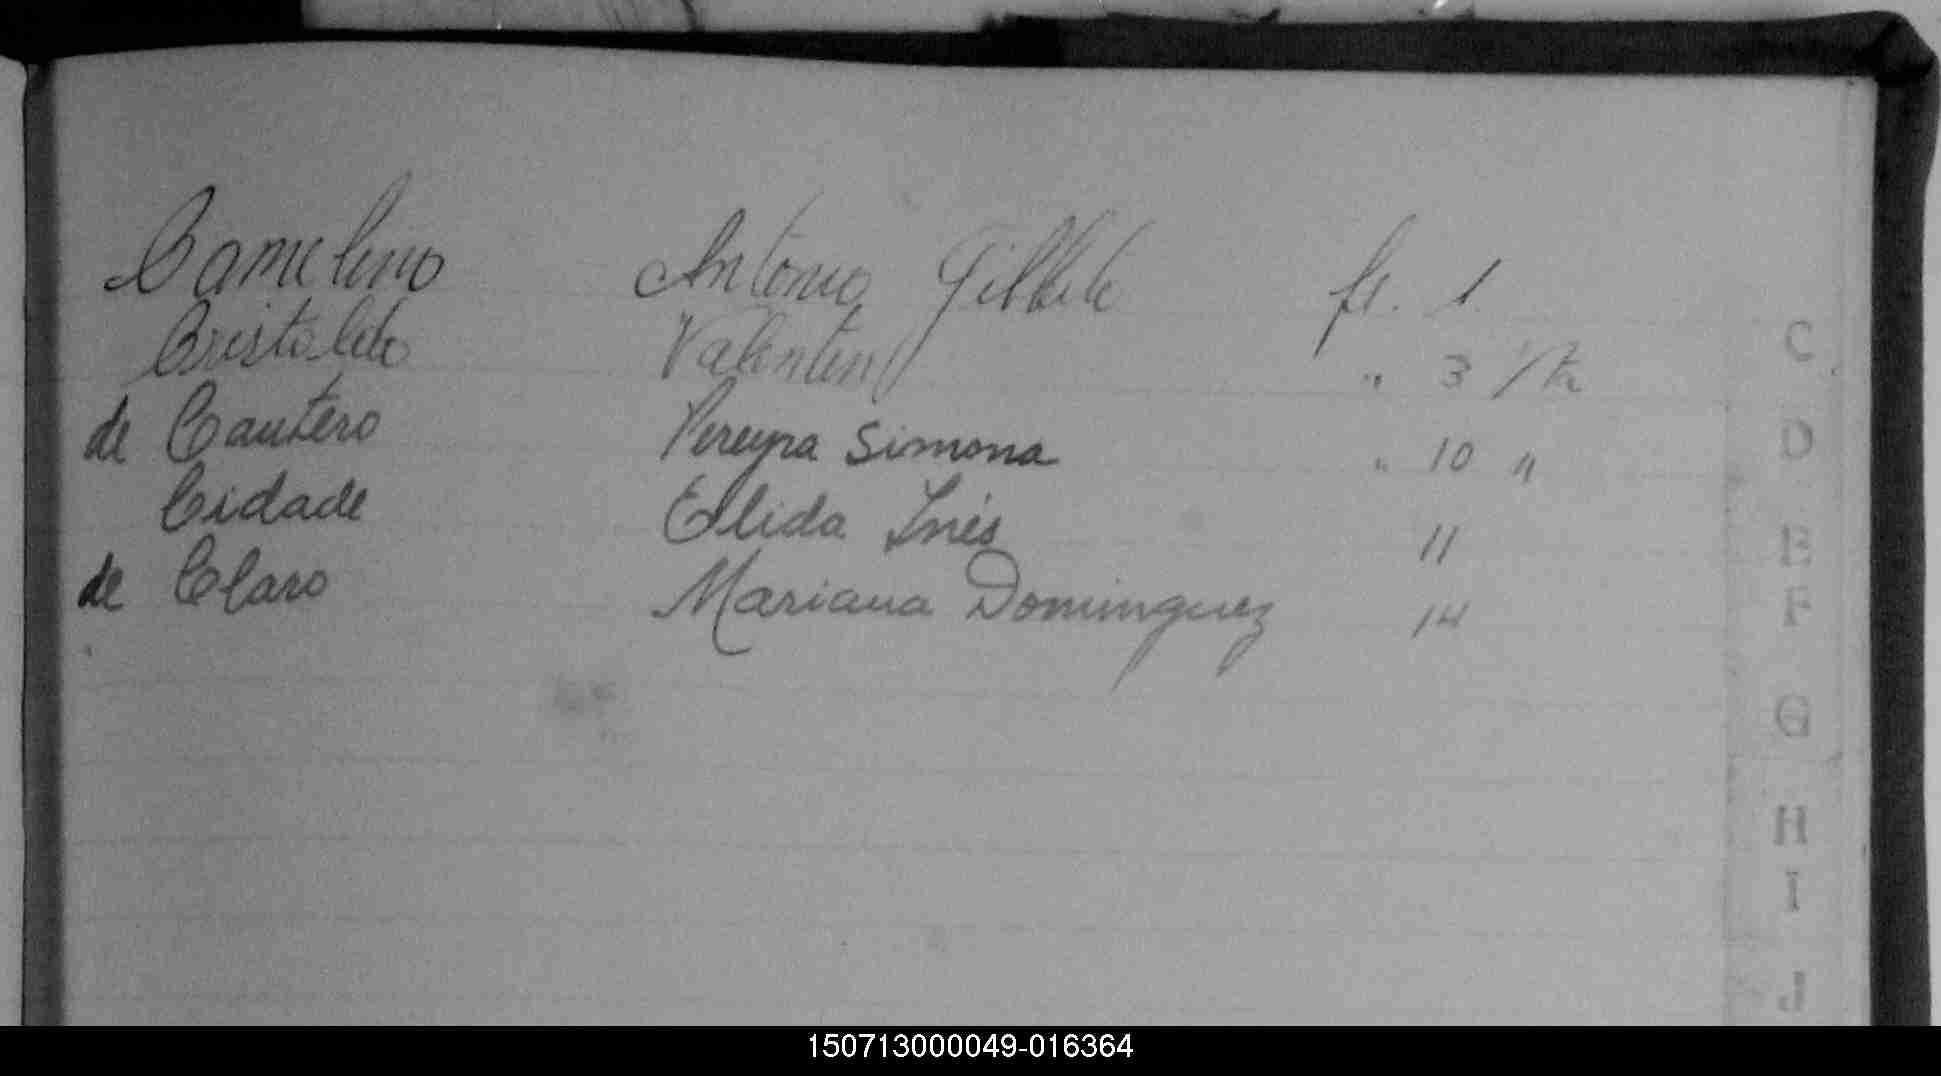 Camelino Antonio Gilberto fs. 1
Cristaldo Valentin " 3 1/2
de Cantero Pereyra Simona " 10 "
Cidade Elida Inés 11
de Claro Mariana Dominguez 14
C
D
E
F
G
H
I
J
150713000049-016364